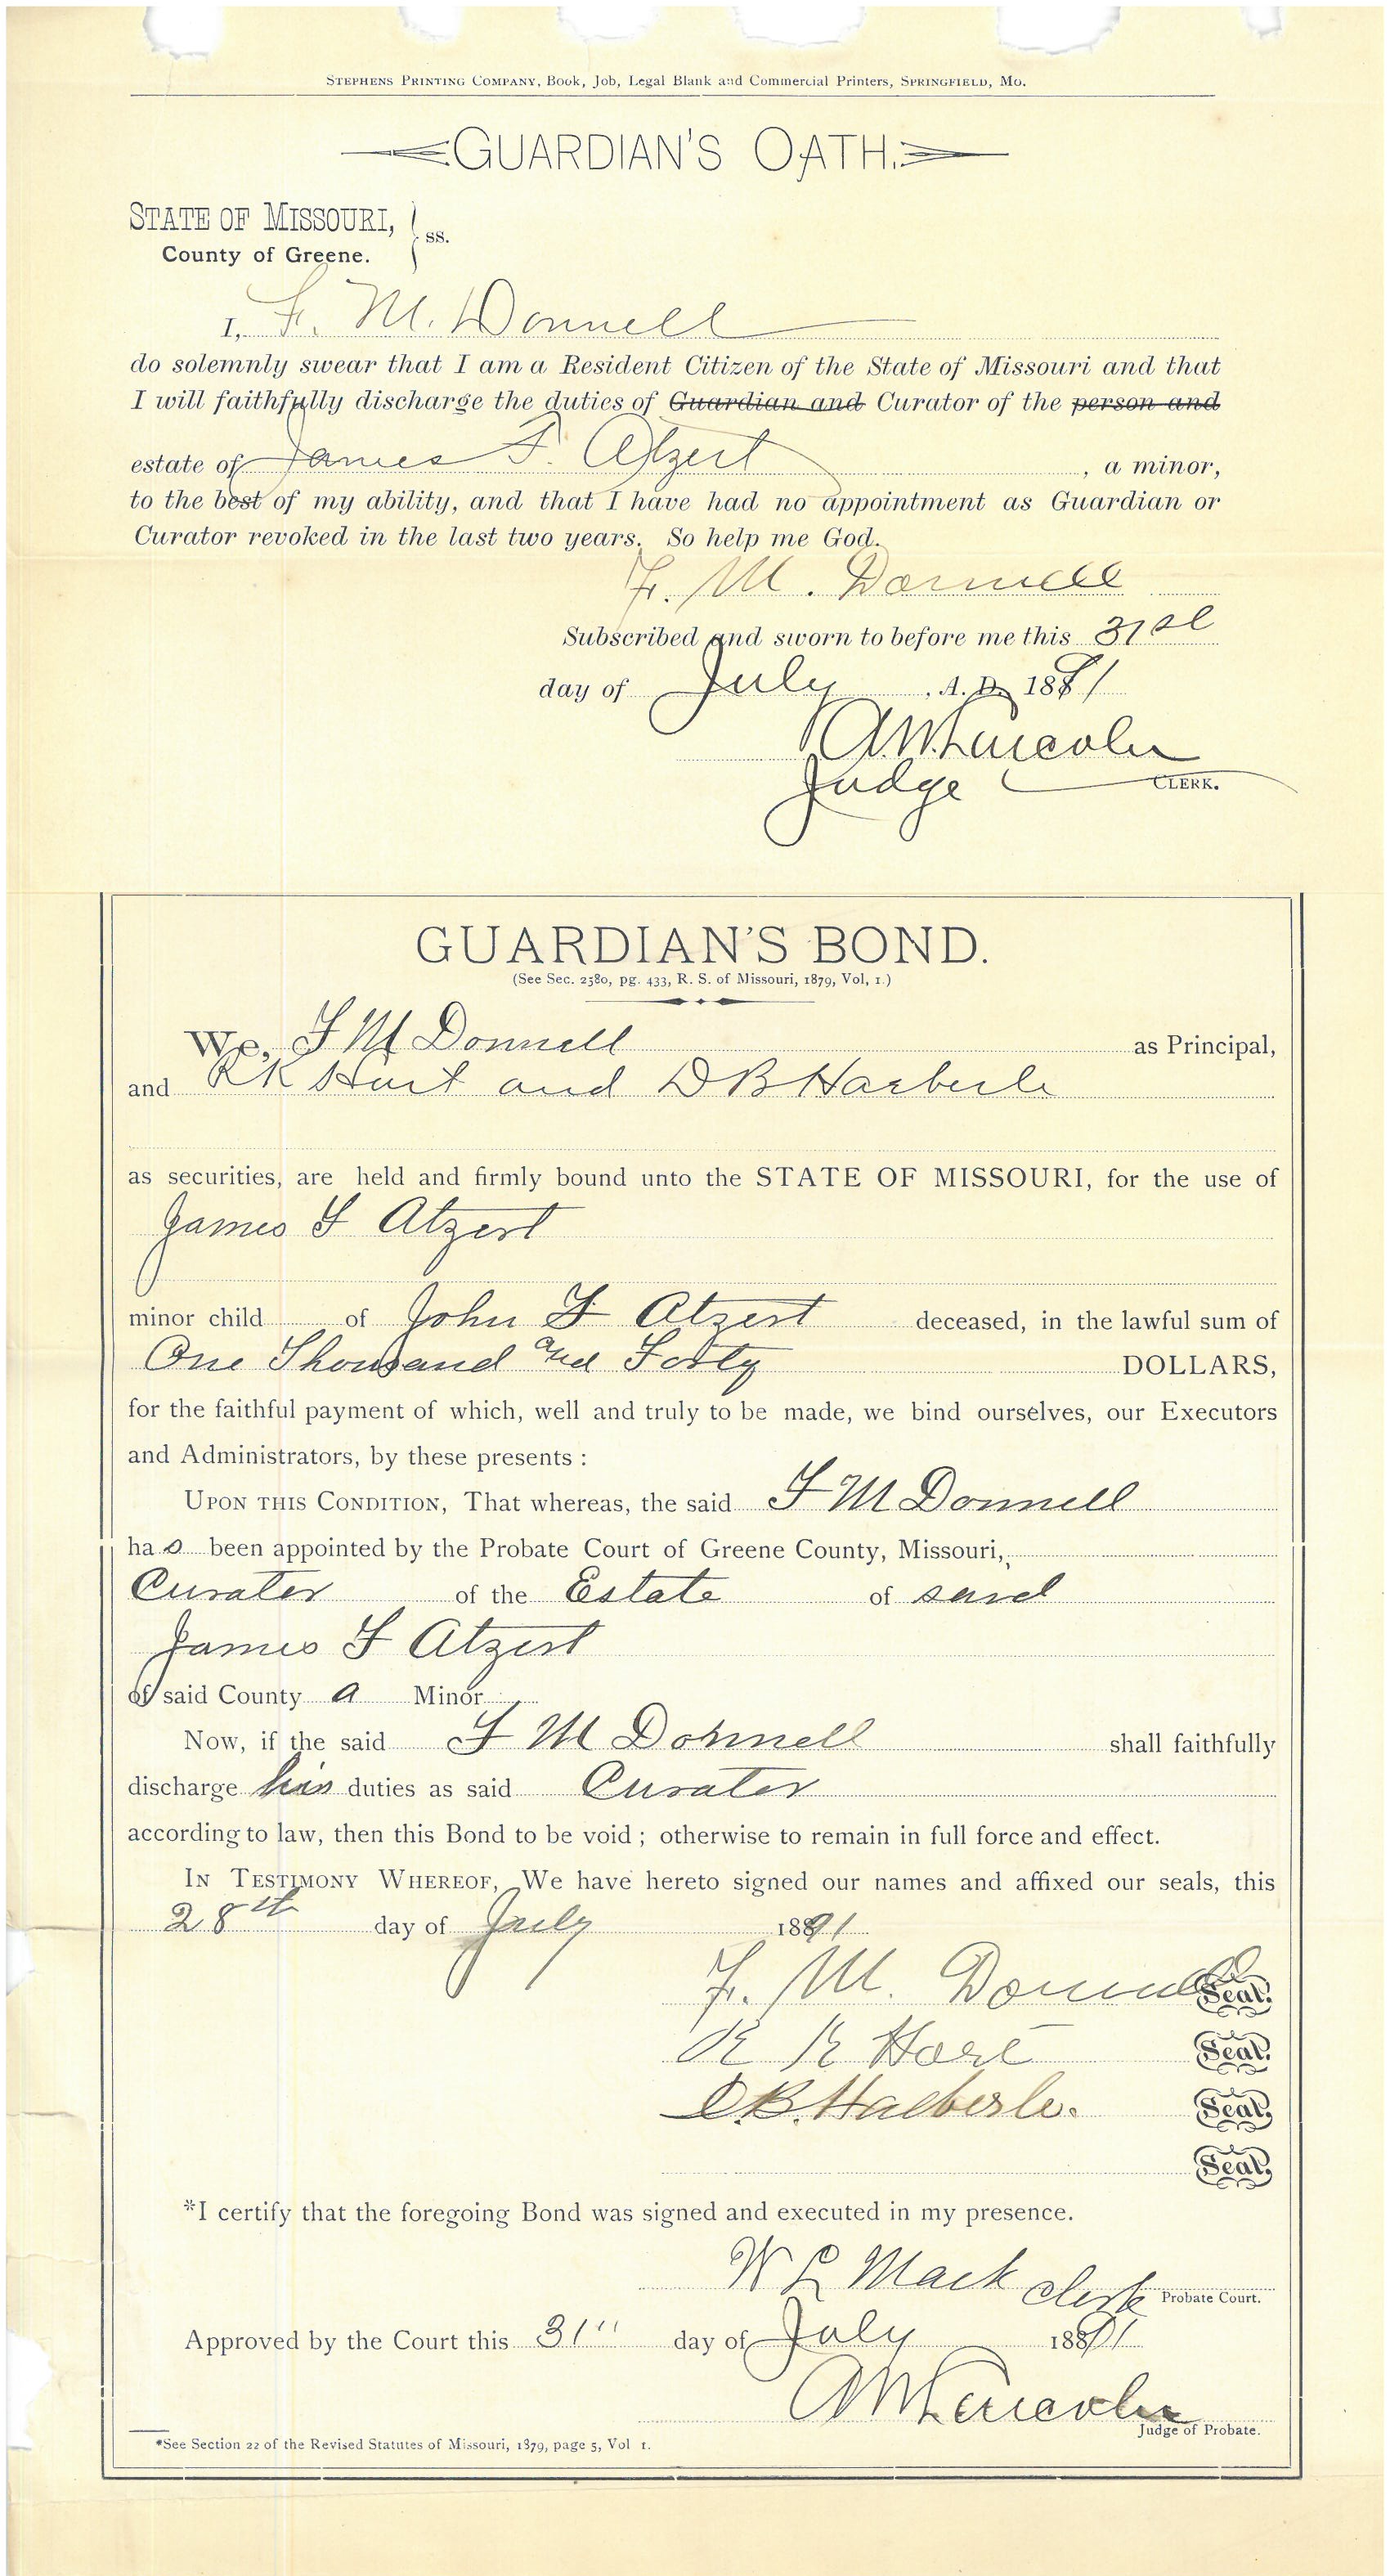 STEPHENS PRINTING COMPANY, Book, Job, Legal Blank and Commercial Printers, SPRINGFIELD, MO.
GUARDIAN'S OATH.
STATE OF MISSOURI, } ss.
County of Greene.
I, F. M. Donnell
do solemnly swear that I am a Resident Citizen of the State of Missouri and that
I will faithfully discharge the duties of Guardian and Curator of the person and
estate of James F. Atzert, a minor,
to the best of my ability, and that I have had no appointment as Guardian or
Curator revoked in the last two years. So help me God.
F. M. Donnell
Subscribed and sworn to before me this 31st
day of July, A. D. 1891
A.W. Lincoln
Judge CLERK.
GUARDIAN'S BOND.
(See Sec. 2580, pg. 433, R. S. of Missouri, 1879, Vol, 1.)
We, F M Donnell as Principal,
and R K Hart and D B Haeberle
as securities, are held and firmly bound unto the STATE OF MISSOURI, for the use of
James F Atzert
minor child of John F Atzert deceased, in the lawful sum of
One Thousand and Forty DOLLARS,
for the faithful payment of which, well and truly to be made, we bind ourselves, our Executors
and Administrators, by these presents :
UPON THIS CONDITION, That whereas, the said F M Donnell
has been appointed by the Probate Court of Greene County, Missouri,
Curator of the Estate of said
James F Atzert
of said County a Minor
Now, if the said F M Donnell shall faithfully
discharge his duties as said Curator
according to law, then this Bond to be void ; otherwise to remain in full force and effect.
IN TESTIMONY WHEREOF, We have hereto signed our names and affixed our seals, this
28th day of July 1891
F. M. Donnell Seal.
R K Hart Seal.
D.B. Haeberle. Seal.
Seal.
*I certify that the foregoing Bond was signed and executed in my presence.
W L Mack Clerk Probate Court.
Approved by the Court this 31" day of July 1891
A W Lincoln
Judge of Probate.
*See Section 22 of the Revised Statutes of Missouri, 1879, page 5, Vol 1.